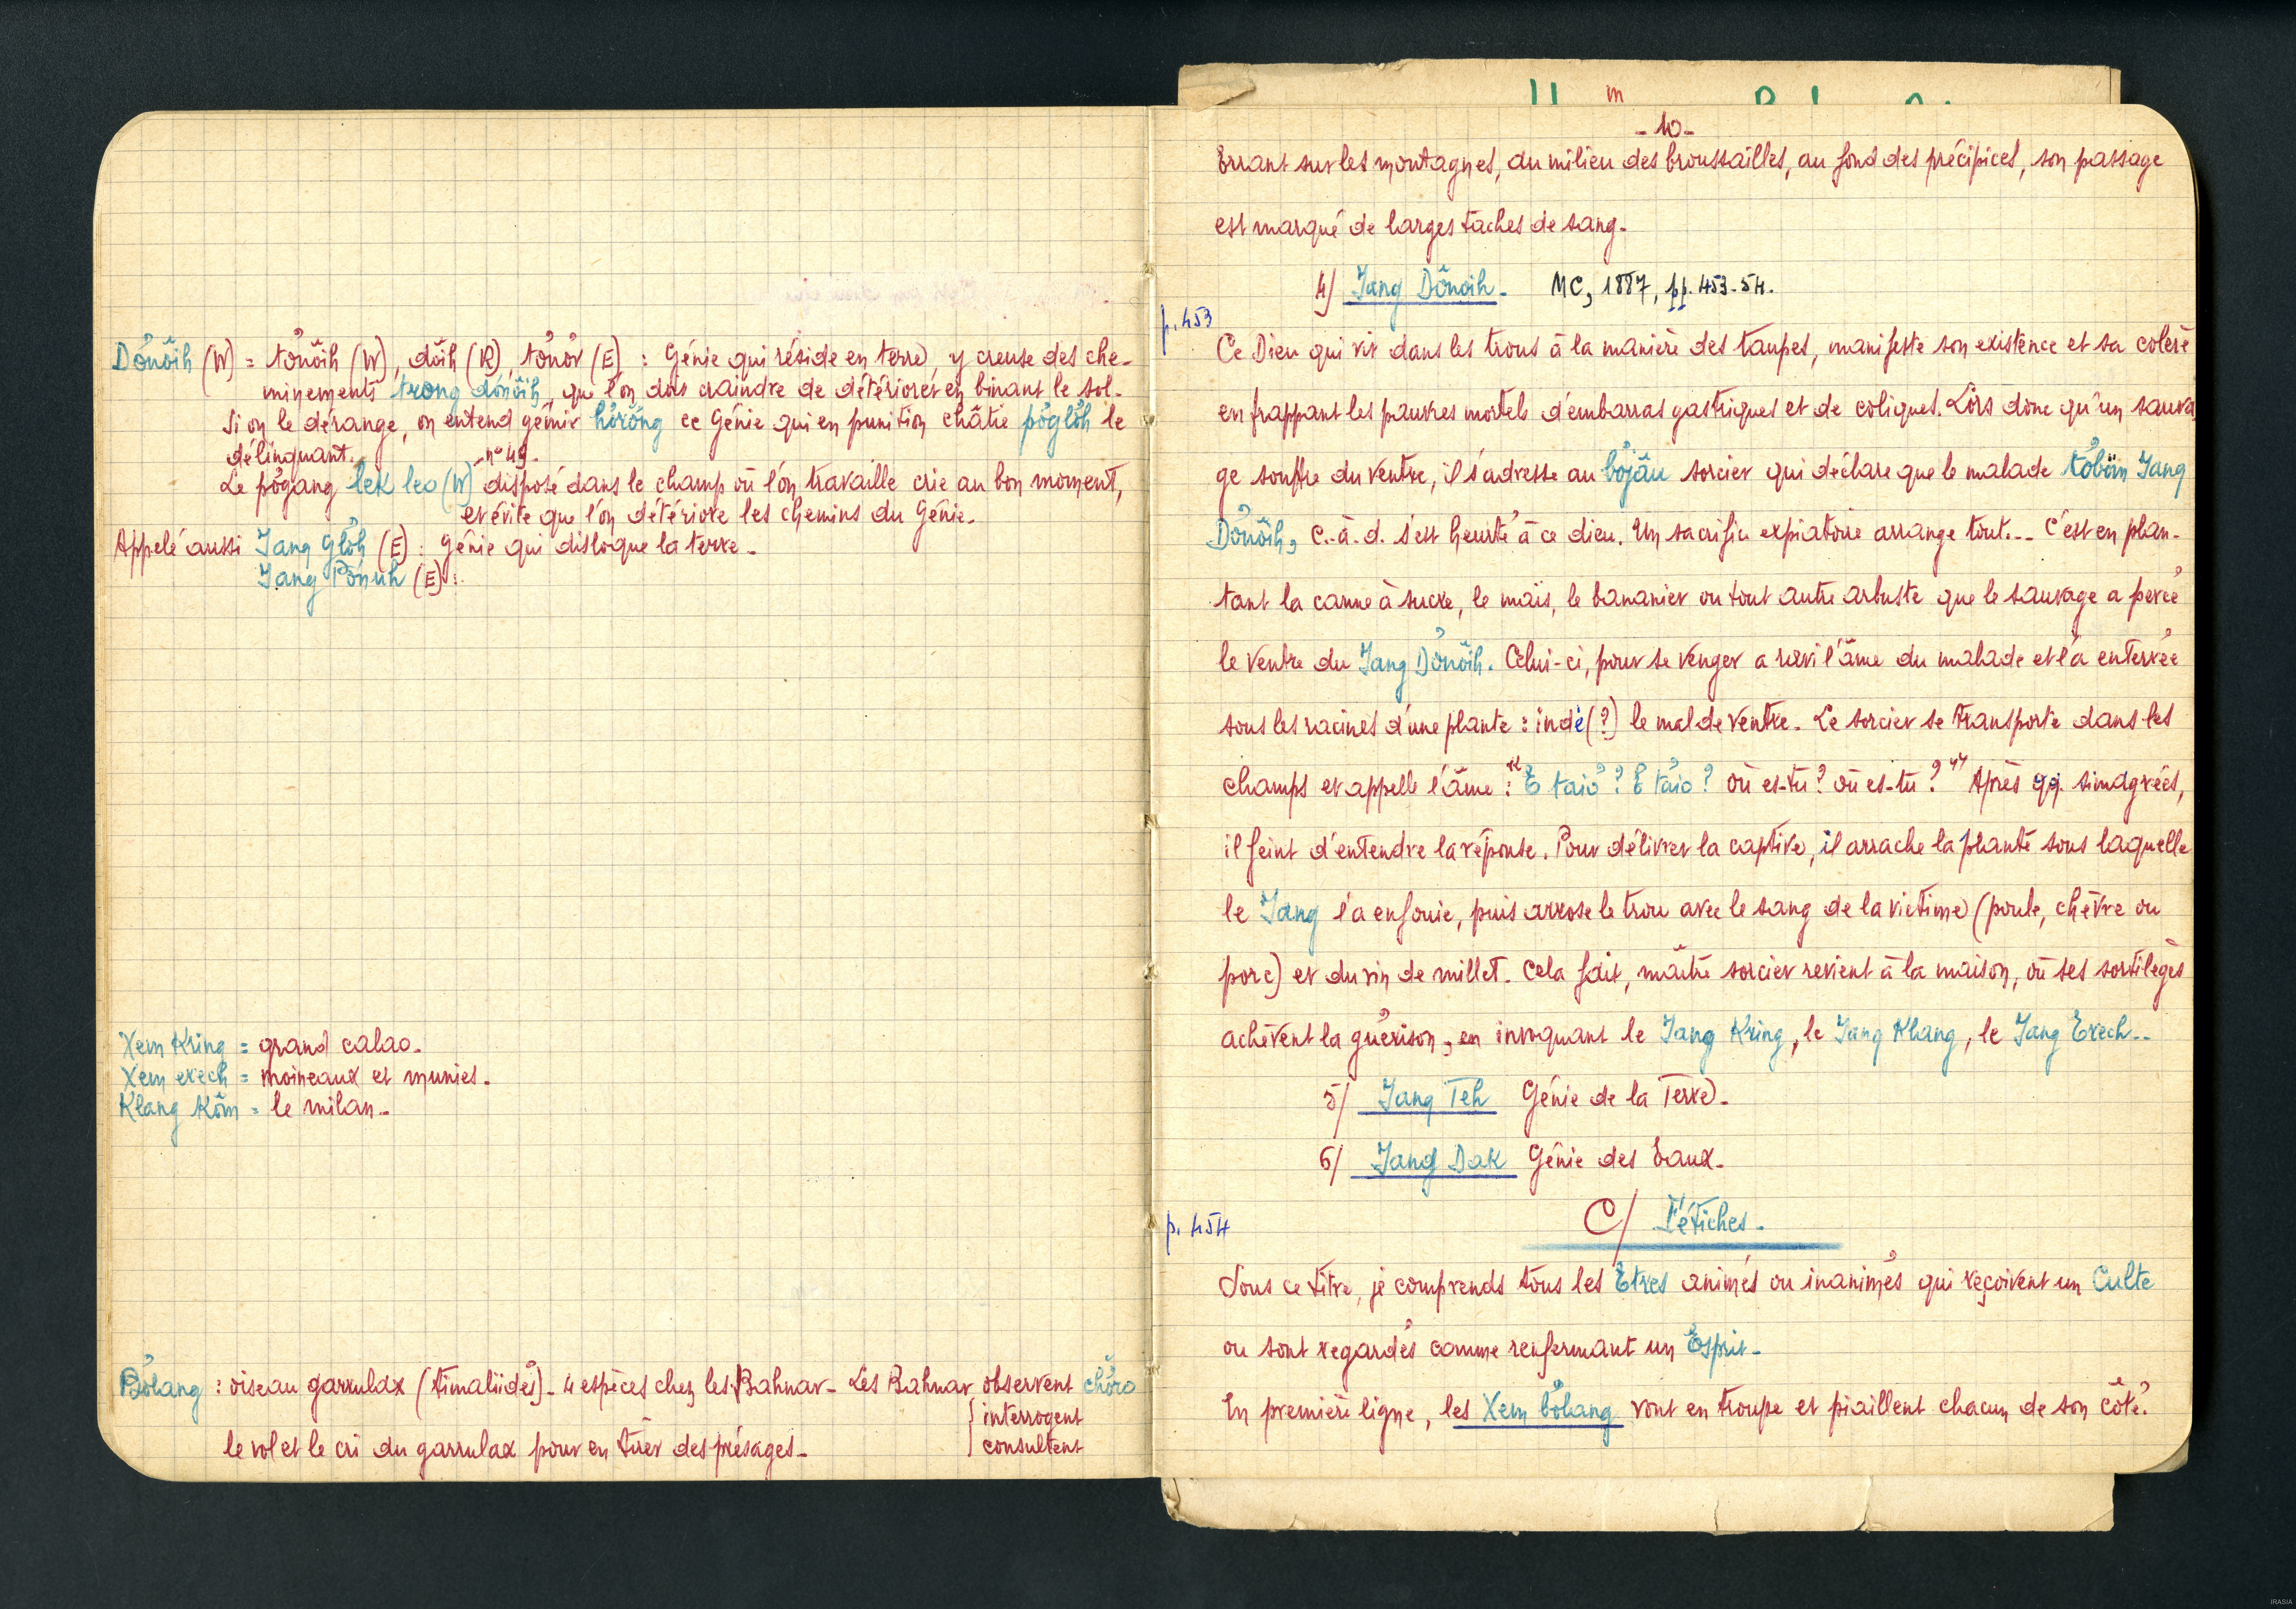 Dơ̆nŏih (W) = tơ̆nŏih (W), dŏih (R), tơ̆nơ̆r (E) : Génie qui réside en terre, y creuse des che-
minements trong dơ̆nŏih, que l'on doit craindre de détériorer en binant le sol.
Si on le dérange, on entend gémir hơ̆rơ̆ng ce Génie qui en punition châtie pơ̆glơ̆h le
délinquant.
Le pơ̆gang lek leo (W) n° 49 disposé dans le champ où l'on travaille crie au bon moment,
et évite que l'on détériore les chemins du Génie.
Appelé aussi Jang Glơ̆h (E) : génie qui disloque la terre.
Jang Pơ̆nuh (E) :
Xem Kring = grand calao.
Xem erech = moineaux et munies.
Klang Kơ̆m = le milan.
Bơ̆lang : oiseau garrulax (timaliidés). 4 espèces chez les Bahnar. Les Bahnar observent chơ̆ro
interrogent
consultent
le vol et le cri du garrulax pour en tirer des présages.
- 10 -
Errant sur les montagnes, au milieu des broussailles, au fond des précipices, son passage
est marqué de larges taches de sang.
4/ Jang Dơ̆noih. MC, 1887, pp. 453-54.
p. 453
Ce Dieu qui vit dans les trous à la manière des taupes, manifeste son existence et sa colère
en frappant les pauvres mortels d'embarras gastriques et de coliques. Lors donc qu'un sauva
ge souffre du ventre, il s'adresse au bơjâu sorcier qui déclare que le malade tơ̆băn Jang
Dơ̆nŏih, c.-à-d. s'est heurté à ce dieu. Un sacrifice expiatoire arrange tout... C'est en plan-
tant la canne à sucre, le maïs, le bananier ou tout autre arbuste que le sauvage a percé
le ventre du Jang Dơ̆nŏih. Celui-ci, pour se venger a ravi l'âme du malade et l'a enterrée
sous les racines d'une plante : indè (?) le mal de ventre. Le sorcier se transporte dans les
champs et appelle l'âme : "E taiơ ? E taiơ ? où es-tu ? où es-tu ? " Après qq. simagrées,
il feint d'entendre la réponse. Pour délivrer la captive, il arrache la plante sous laquelle
le Jang l'a enfouie, puis arrose le trou avec le sang de la victime (poule, chèvre ou
porc) et du vin de millet. Cela fait, maître sorcier revient à la maison, où ses sortilèges
achèvent la guérison, en invoquant le Jang Kring, le Jang Klang, le Jang Erech...
5/ Jang Teh Génie de la Terre.
6/ Jang Dak Génie des Eaux.
p. 454
C/ Fétiches.
Sous ce titre, je comprends tous les Etres animés ou inanimés qui reçoivent un Culte
ou sont regardés comme renfermant un Esprit.
En première ligne, les Xem bơ̆lang vont en troupe et piaillent chacun de son côté.
IRASIA